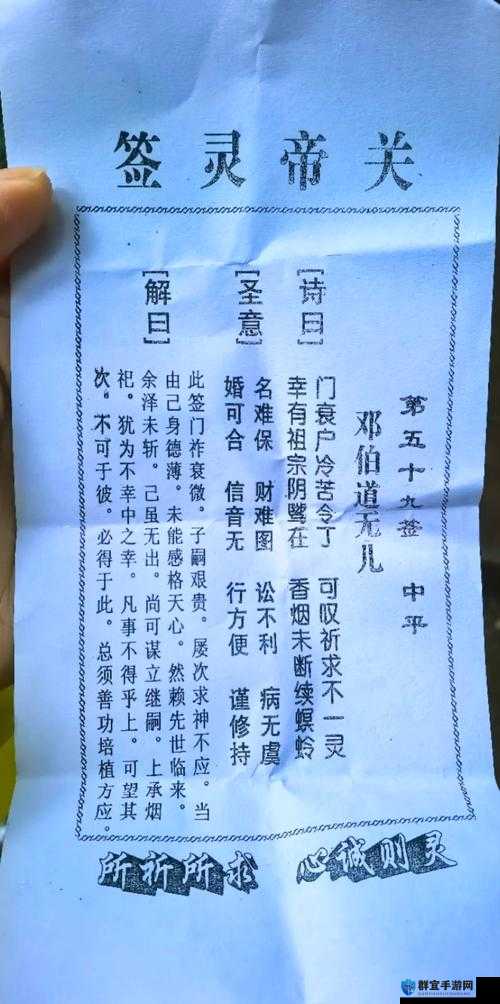 关帝灵签
第五十九签 中平
邓伯道无儿
[诗曰]
门衰户冷苦令丁 可叹祈求不一灵
幸有祖宗阴骘在 香烟未断续螟蛉
[圣意]
名难保 财难图 讼不利 病无虞
婚可合 信音无 行方便 谨修持
[解曰]
此签门祚衰微。子嗣艰贵。屡次求神不应。当
由己身德薄。未能感格天心。然赖先世临来。
余泽未斩。己虽无出。尚可谋立继嗣。上承烟
祀。犹为不幸中之幸。凡事不得乎上。可望其
次。不可于彼。必得于此。总须善功培植方应。
所祈所求 心诚则灵
群宜手游网